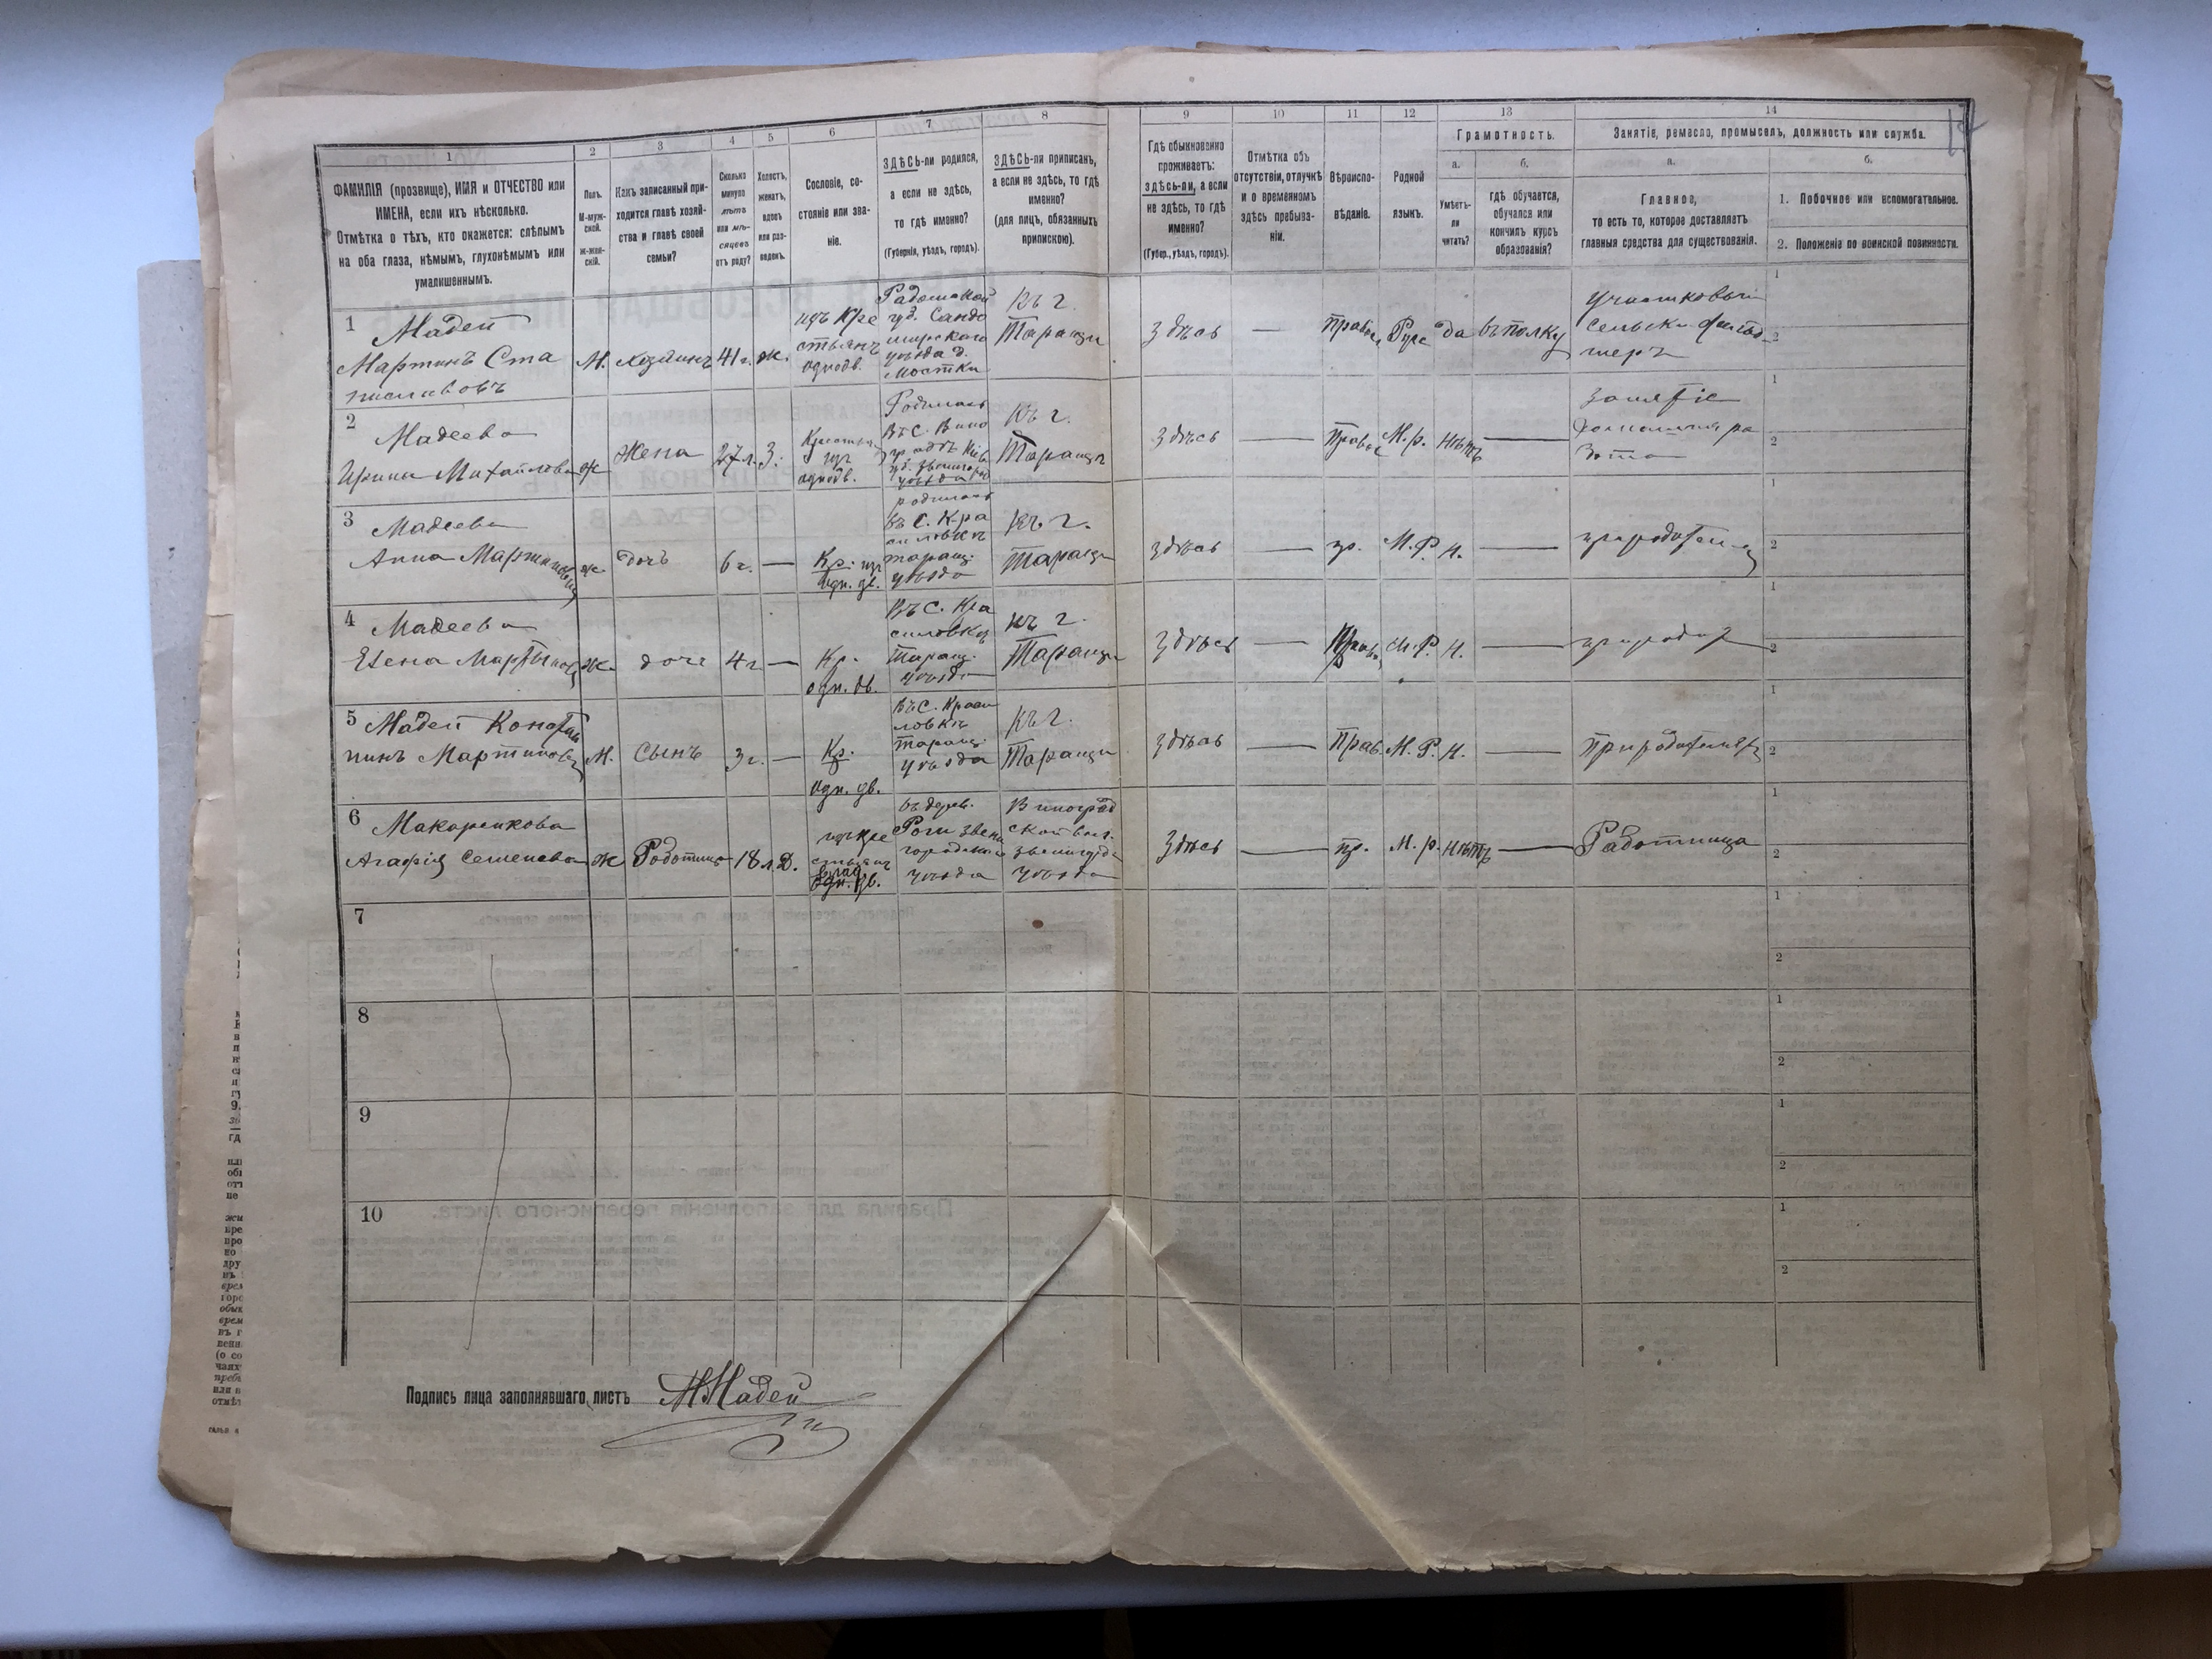 1
2
3
4
5
6
7
8
9
10
11
12
13
14
ФАМИЛІЯ (прозвище), ИМЯ и ОТЧЕСТВО или
ИМЕНА, если ихъ нѣсколько.
Отмѣтка о тѣхъ, кто окажется: слѣпымъ
на оба глаза, нѣмымъ, глухонѣмымъ или
умалишеннымъ.
Полъ.
М-муж-
ской.
Ж-жен-
скій.
Какъ записанный при-
ходится главѣ хозяй-
ства и главѣ своей
семьи?
Сколько
минуло
лѣтъ
или мѣ-
сяцевъ
отъ роду?
Холостъ,
женатъ,
вдовъ
или раз-
веденъ.
Сословіе, со-
стояніе или зва-
ніе.
ЗДѢСЬ-ли родился,
а если не здѣсь,
то гдѣ именно?
(Губернія, уѣздъ, городъ).
ЗДѢСЬ-ли приписанъ,
а если не здѣсь, то гдѣ
именно?
(для лицъ, обязанныхъ
припискою).
Гдѣ обыкновенно
проживаетъ:
здѣсь-ли, а если
не здѣсь, то гдѣ
именно?
(Губер., уѣздъ, городъ).
Отмѣтка объ
отсутствіи, отлучкѣ
и о временномъ
здѣсь пребыва-
ніи.
Вѣроиспо-
вѣданіе.
Родной
языкъ.
Грамотность.
а.
б.
Умѣетъ-
ли
читать?
гдѣ обучается,
обучался или
кончилъ курсъ
образованія?
Занятіе, ремесло, промыселъ, должность или служба.
а.
б.
Главное,
то есть то, которое доставляетъ
главныя средства для существованія.
1. Побочное или вспомогательное.
2. Положеніе по воинской повинности.
1 Мадей
Мартинъ Ста
ниславовъ
М.
хозяинъ
41 г.
ж.
изъ Кре
стьянъ
однодв.
Радомской
губ. Сандо
мирскаго
уѣзда д.
Мостки
Къ г.
Таращи
здѣсь
—
Правос.
Русс
да
въ полку
Участковый
сельскій фельд
шеръ
2 Мадеева
Ирина Михайлова
ж
жена
27 л.
З.
Крестьян.
изъ
однодв.
Родилась
въ с. Вино
градѣ Кіев
губ. Звенигород
уѣзда
Къ г.
Таращи
здѣсь
—
Правос
М. р.
нѣтъ
—
Занятіе
домашняя ра
бота
3 Мадеева
Анна Мартинова
ж.
дочь
6 г.
—
Кр. изъ
одн. дв.
родилась
въ с. Кра
силовкѣ
таращ.
уѣзда
Къ г.
Таращи
здѣсь
—
пр.
М. Р.
Н.
—
4 Мадеева
Елена Мартынова
ж.
дочь
4 г
—
Кр.
одн. дв.
Въ с. Кра
силовкѣ
Таращ.
уѣзда
Къ г.
Таращи
здѣсь
—
Прав.
М. Р.
Н.
—
5 Мадей Констан
тинъ Мартиновъ
М.
сынъ
3 г.
—
Кр.
одн. дв.
Въ с. Краси
ловкѣ
таращ.
уѣзда
Къ г.
Таращи
здѣсь
—
Прав.
М. Р.
Н.
—
При родителяхъ
6 Макаренкова
Агафія Семенова
ж
Работница
18 л.
Д.
изъ кре
стьянъ
въ дерев.
Роги Звени
городскаго
уѣзда
Виноград
ской вол.
Звенигород
уѣзда
Здѣсь
—
пр.
М. р.
нѣтъ
—
Работница
7
8
9
10
Подпись лица заполнявшаго листъ М Мадей